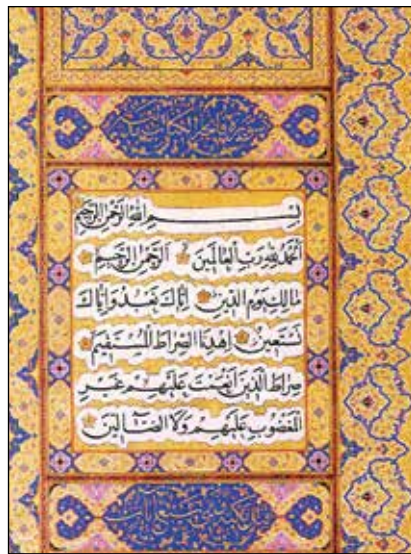 بِسْمِ اللهِ الرَّحْمٰنِ الرَّحِيمِ
اَلْحَمْدُ لِلّٰهِ رَبِّ الْعَالَمِينَ اَلرَّحْمٰنِ الرَّحِيمِ
مَالِكِ يَوْمِ الدِّينِ اِيَّاكَ نَعْبُدُ وَاِيَّاكَ
نَسْتَعِينُ اِهْدِنَا الصِّرَاطَ الْمُسْتَقِيمَ
صِرَاطَ الَّذِينَ اَنْعَمْتَ عَلَيْهِمْ غَيْرِ
الْمَغْضُوبِ عَلَيْهِمْ وَلَا الضَّالِّينَ